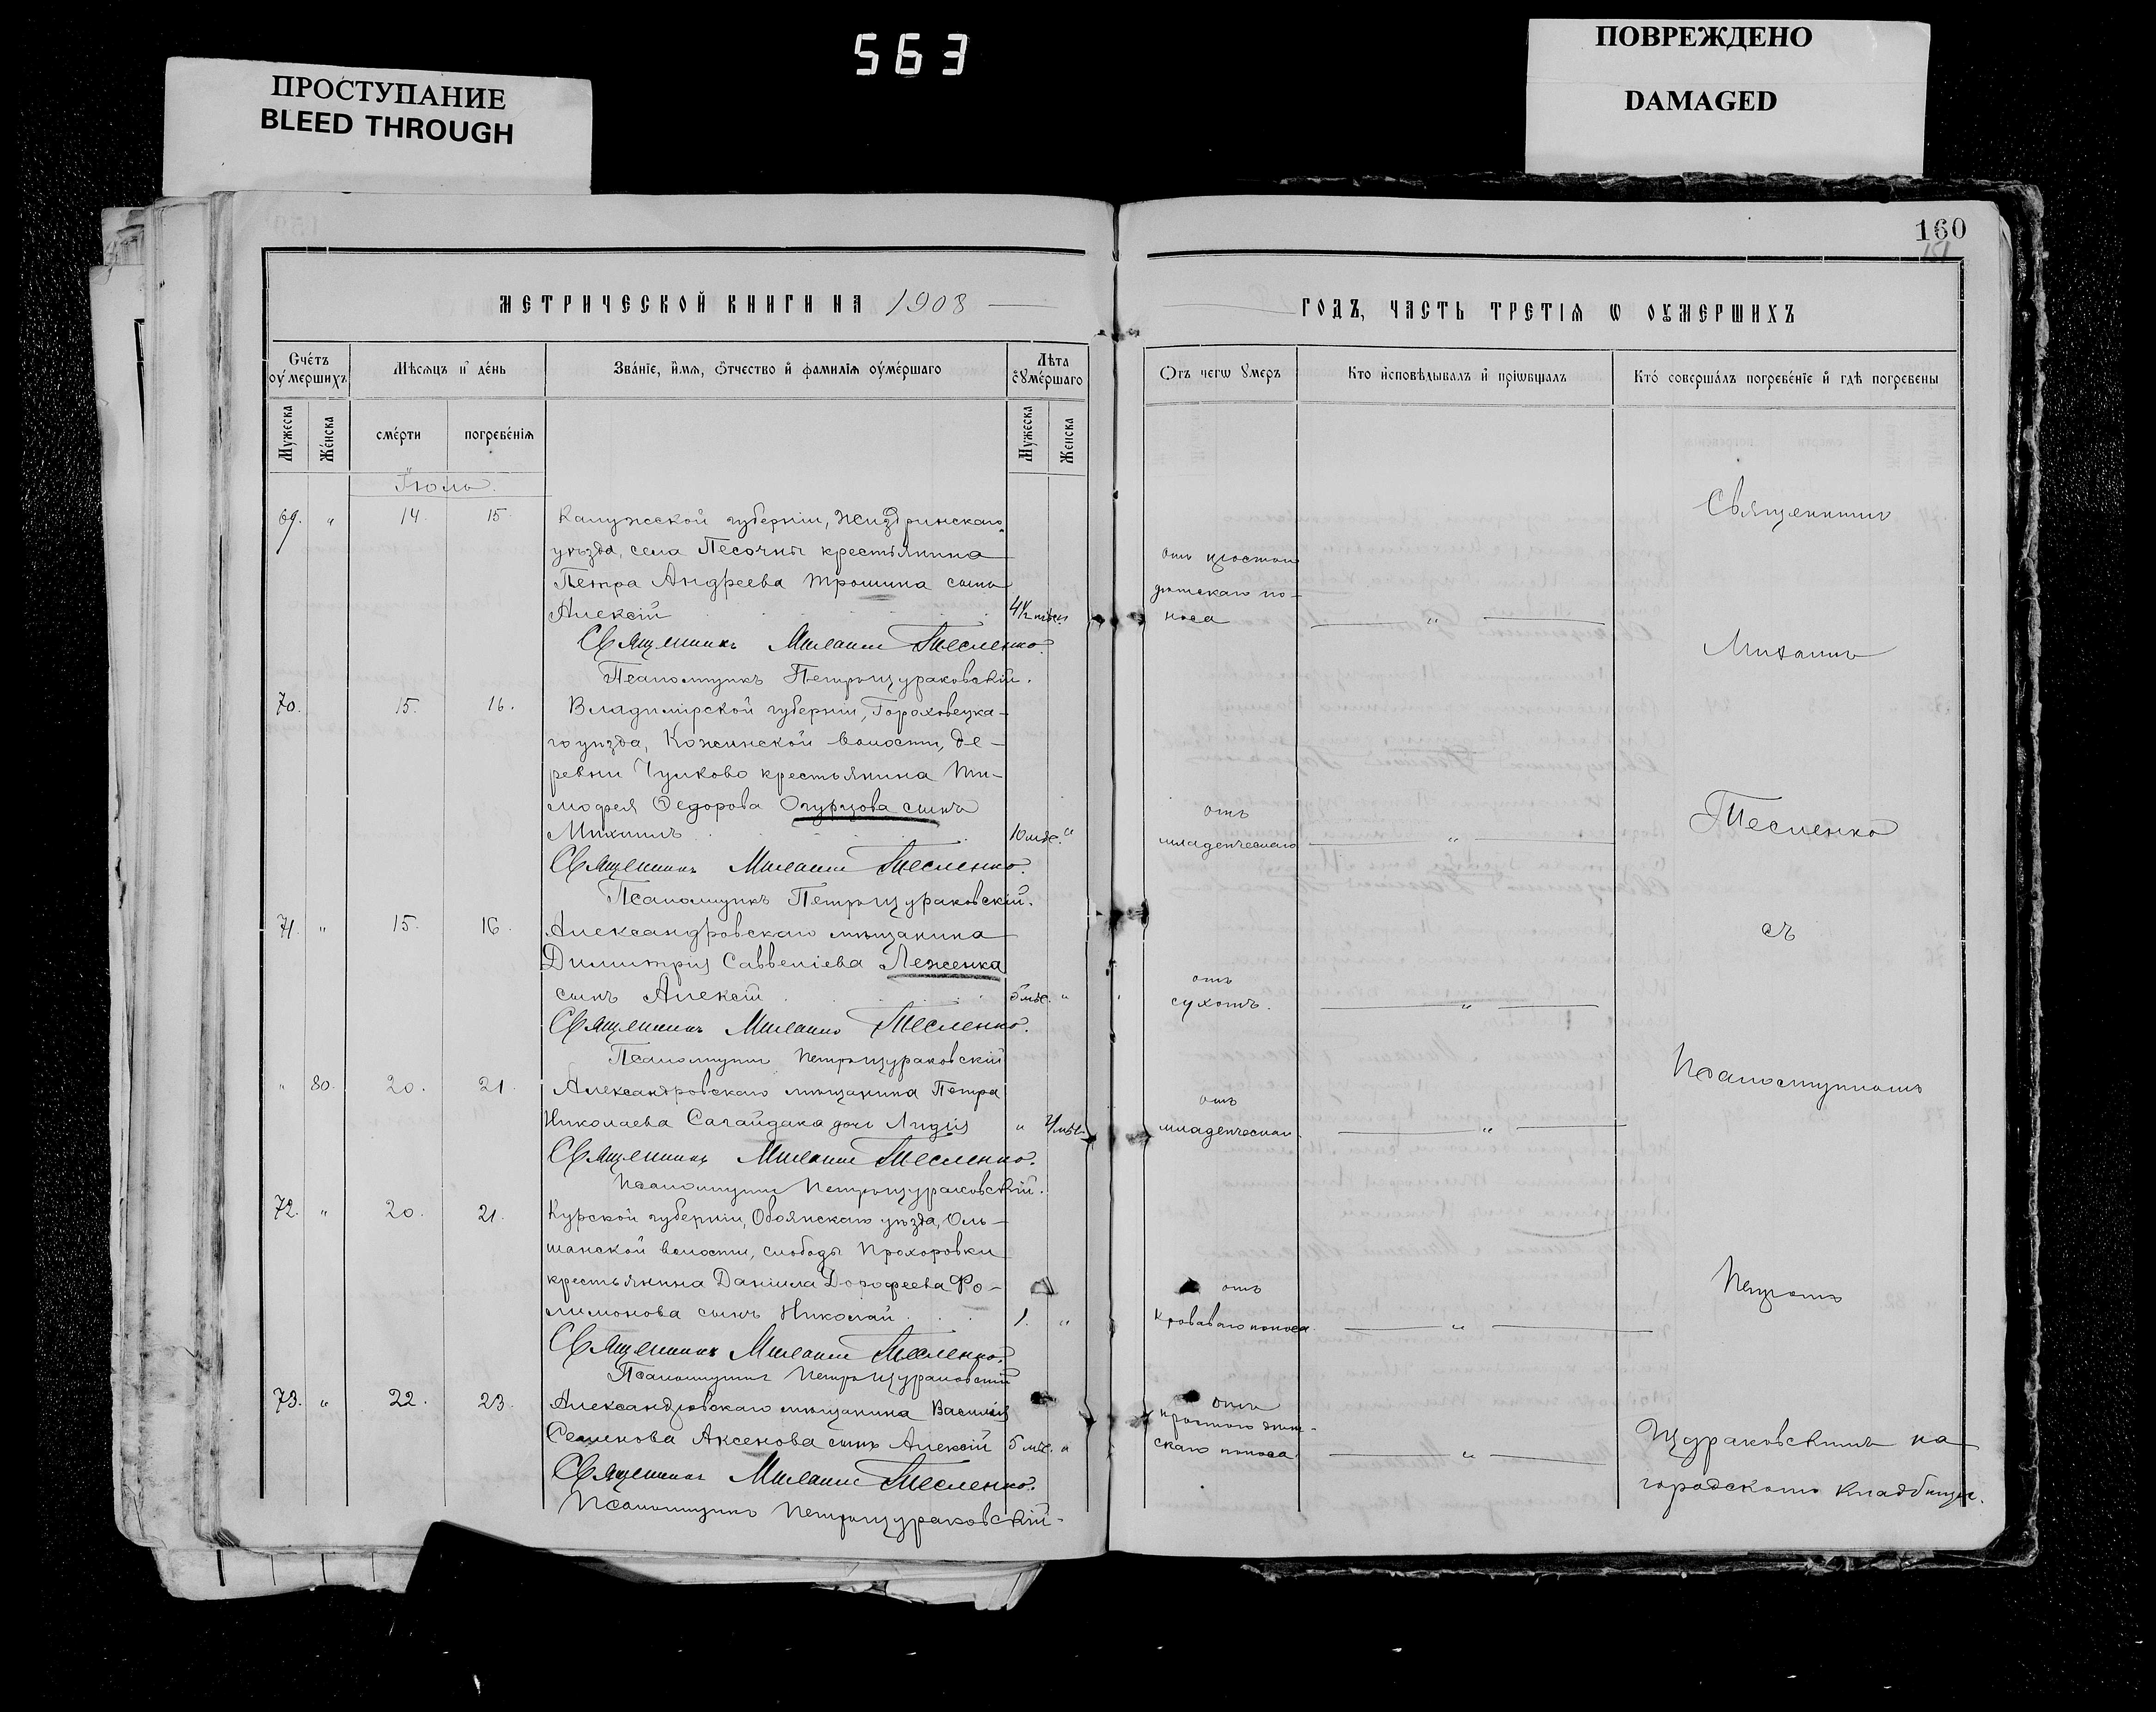 563
ПРОСТУПАНИЕ
BLEED THROUGH
ПОВРЕЖДЕНО
DAMAGED
160
МЕТРИЧЕСКОЙ КНИГИ НА 1908
ГОДЪ, ЧАСТЬ ТРЕТІЯ Ѡ ОУМЕРШИХЪ
Счетъ оумершихъ
Мѣсяцъ и день
Званіе, имя, отчество и фамилія оумершаго
Лѣта оумершаго
Отъ чегѡ умеръ
Кто исповѣдывалъ и пріѡбщалъ
Кто совершалъ погребеніе и гдѣ погребены
Мужеска
Женска
смерти
погребенія
Мужеска
Женска
Іюль.
69. " 14. 15. Калужской губерніи, Жиздринскаго
уѣзда, села Песочны крестьянина
Петра Андреева Трошина сынъ
Алексій 4½ мѣс.
отъ простой
дѣтскаго по-
носа "
Священникъ Михаилъ Тесленко.
Псаломщикъ Петръ Щураковскій.
70. 15. 16. Владимірской губерніи, Гороховецка-
го уѣзда, Кожинской волости, де-
ревни Чулково крестьянина Ти-
мофея Ѳедорова Огурцова сынъ
Михаилъ 10 мѣс. "
отъ
младенческаго "
Священникъ Михаилъ Тесленко.
Псаломщикъ Петръ Щураковскій.
71. " 15. 16. Александровскаго мѣщанина
Димитрія Саввеніева Леженка
сынъ Алексій 5 мѣс. "
отъ
сухотъ. "
Священникъ Михаилъ Тесленко.
Псаломщикъ Петръ Щураковскій
" 80. 20. 21. Александровскаго мѣщанина Петра
Николаева Сагайдака дочь Лидія " 4 мѣс.
отъ
младенческаго. "
Священникъ Михаилъ Тесленко.
Псаломщикъ Петръ Щураковскій.
72. " 20. 21. Курской губерніи, Обоянскаго уѣзда, Оль-
шанской волости, слободы Прохоровки
крестьянина Даніила Дорофеева Фо-
лимонова сынъ Николай 1. "
отъ
кроваваго поноса "
Священникъ Михаилъ Тесленко.
Псаломщикъ Петръ Щураковскій
73. " 22. 23. Александровскаго мѣщанина Василія
Семенова Аксенова сынъ Алексій 5 мѣс. "
отъ
простого дѣт-
скаго поноса. "
Священникъ Михаилъ Тесленко.
Псаломщикъ Петръ Щураковскій.
Священникъ
Михаилъ
Тесленко
съ
Псаломщикомъ
Петромъ
Щураковскимъ на
городскомъ кладбищѣ.